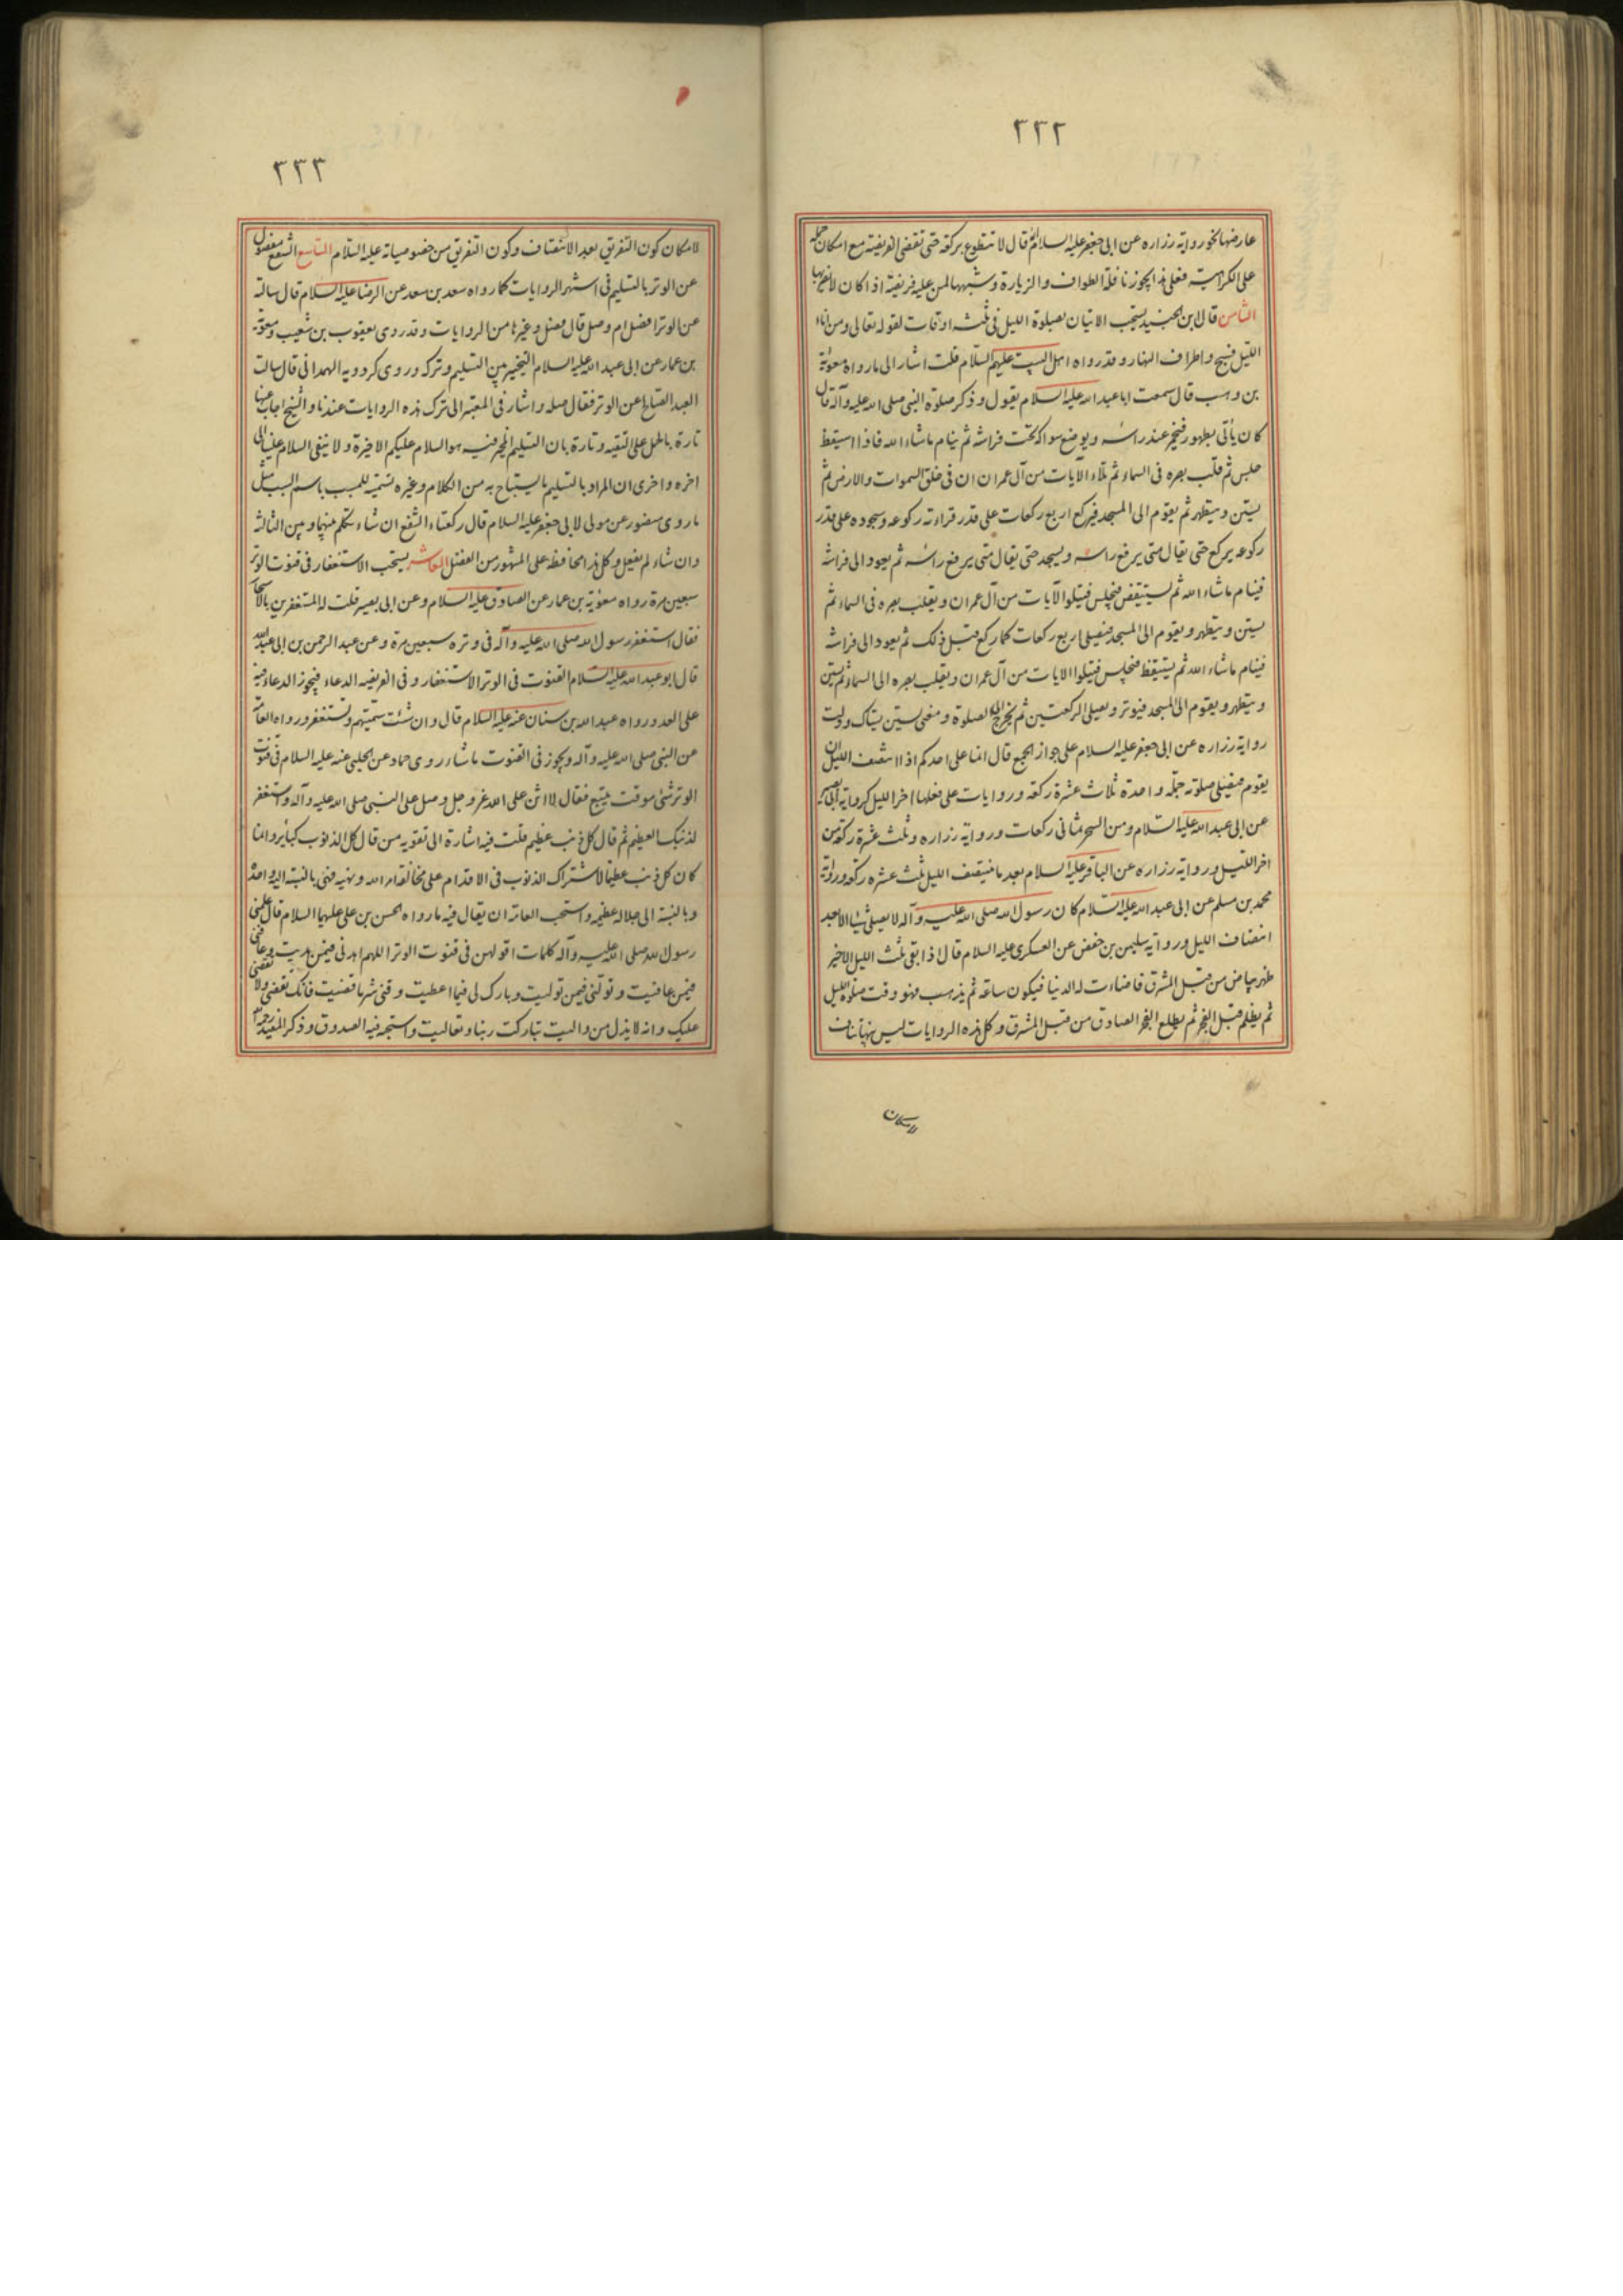 ٢٢٢
عارضها نحو رواية زراره عن ابي جعفر عليه السلام قال لا تتطوع بركعة حتى تقضى الفريضة مع امكان حمله
على الكراهية فعلى هذا يجوز نافلة الطواف والزيارة وشبهها لمن عليه فريضة اذا كان لا يضر بها
الثامن قال ابن الجنيد يستحب الاتيان بصلوة الليل في ثلثه اوقات لقوله تعالى ومن اناء
الليل فسبح واطراف النهار وقد رواه اهل البيت عليهم السلام قلت اشار الى ما رواه معوية
بن وهب قال سمعت ابا عبد الله عليه السلام يقول وذكر صلوة النبي صلى الله عليه وآله قال
كان يأتى بطهور فيخمر عند راسه ويوضع سواكه تحت فراشه ثم ينام ما شاء الله فاذا استيقظ
جلس ثم قلب بصره فى السماء ثم تلاء الآيات من آل عمران ان فى خلق السموات والارض ثم
يستن ويتطهر ثم يقوم الى المسجد فيركع اربع ركعات على قدر قراءته ركوعه وسجوده على قدر
ركوعه يركع حتى يقال متى يرفع راسه ويسجد حتى يقال متى يرفع راسه ثم يعود الى فراشه
فينام ما شاء الله ثم يستيقض فيجلس فيتلوا الآيات من آل عمران ويقلب بصره فى السماء ثم
يستن ويتطهر ويقوم الى المسجد فيصلى اربع ركعات كما ركع قبل ذلك ثم يعود الى فراشه
فينام ما شاء الله ثم يستيقظ فيجلس فيتلوا الايات من آل عمران ويقلب بصره الى السماء ثم يستن
ويتطهر ويقوم الى المسجد فيوتر ويصلى الركعتين ثم يخرج الى الصلوة ومعنى يستن يستاك ودلت
رواية زراره عن ابى جعفر عليه السلام على جواز الجمع قال انما على احدكم اذا انتصف الليل ان
يقوم فيصلى صلوته جملة واحدة ثلاث عشرة ركعة وروايات على فعلها اخر الليل كرواية ابى بصير
عن ابى عبد الله عليه السلام ومن السحر ثمانى ركعات ورواية زراره وثلث عشرة ركعة من
اخر الليل ورواية زراره عن الباقر عليه السلام بعد ما ينتصف الليل ثلث عشره ركعة ورواية
محمد بن مسلم عن ابى عبد الله عليه السلام كان رسول الله صلى الله عليه وآله لا يصلى شيئا الا بعد
انتصاف الليل ورواية سليمن بن حفص عن العسكرى عليه السلام قال اذا بقى ثلث الليل الاخير
ظهر بياض من قبل المشرق فاضاءت له الدنيا فيكون ساعة ثم يذهب فهو وقت صلوة الليل
ثم يظلم قبل الفجر ثم يطلع الفجر الصادق من قبل المشرق وكل هذه الروايات ليس بينها تناف
لامكان
٢٢٣
لامكان كون التفريق بعد الانتصاف وكون التفريق من خصوصياته عليه السلام التاسع الشفع مفصول
عن الوتر بالتسليم فى اشهر الروايات كما رواه سعد بن سعد عن الرضا عليه السلام قال سالته
عن الوتر افضل ام وصل قال فصل وغيرها من الروايات وقد روى يعقوب بن شعيب ومعوية
بن عمار عن ابى عبد الله عليه السلام التخيير بين التسليم وتركه وروى كردويه الهمدانى قال سالت
العبد الصالح عن الوتر فقال صله واشار فى المعتبر الى ترك هذه الروايات عندنا والشيخ اجاب عنها
تارة بالحمل على التقيه وتارة بان التسليم المخير فيه هو السلام عليكم الاخيرة ولا ينفى السلام علينا الى
اخره واخرى ان المراد بالتسليم ما يستباح به من الكلام وغيره تسمية للمسبب باسم السبب مثل
ما روى منصور عن مولى لابى جعفر عليه السلام قال ركعتاء الشفع ان شاء تكلم بينهما وبين الثالثه
وان شاء لم يفعل وكل هذا محافظة على المشهور من الفصل العاشر يستحب الاستغفار فى قنوت الوتر
سبعين مرة رواه معوية بن عمار عن الصادق عليه السلام وعن ابى بصير قلت له المستغفرين بالاسحار
فقال استغفر رسول الله صلى الله عليه وآله فى وتره سبعين مرة وعن عبد الرحمن بن ابى عبد الله
قال ابو عبد الله عليه السلام القنوت فى الوتر الاستغفار وفى الفريضه الدعاء فيجوز الدعاء فيه
على العدو ورواه عبد الله بن سنان عنه عليه السلام قال وان شئت سميتهم وتستغفر ورواه العامة
عن النبى صلى الله عليه وآله ويجوز فى القنوت ما شاء روى حماد عن الحلبى عنه عليه السلام فى قنوت
الوتر شئ موقت يتبع فقال لا اثن على الله عز وجل وصل على النبى صلى الله عليه وآله واستغفر
لذنبك العظيم ثم قال كل ذنب عظيم قلت فيه اشارة الى تقويه من قال كل الذنوب كبائر وانما
كان كل ذنب عظيما لاشتراك الذنوب فى الاقدام على مخالفة امر الله ونهيه فهى بالنسبة اليه واحدة
وبالنسبة الى جلاله عظيمه واستحب العامه ان يقال فيه ما رواه الحسن بن على عليهما السلام قال علمنى
رسول الله صلى الله عليه وآله كلمات اقولهن فى قنوت الوتر اللهم اهدنى فيمن هديت وعافنى
فيمن عافيت وتولنى فيمن توليت وبارك لى فيما اعطيت وقنى شر ما قضيت فانك تقضى ولا يقضى
عليك وانه لا يذل من واليت تباركت ربنا وتعاليت واستحبه فيه الصدوق وذكر المفيد رحمه الله